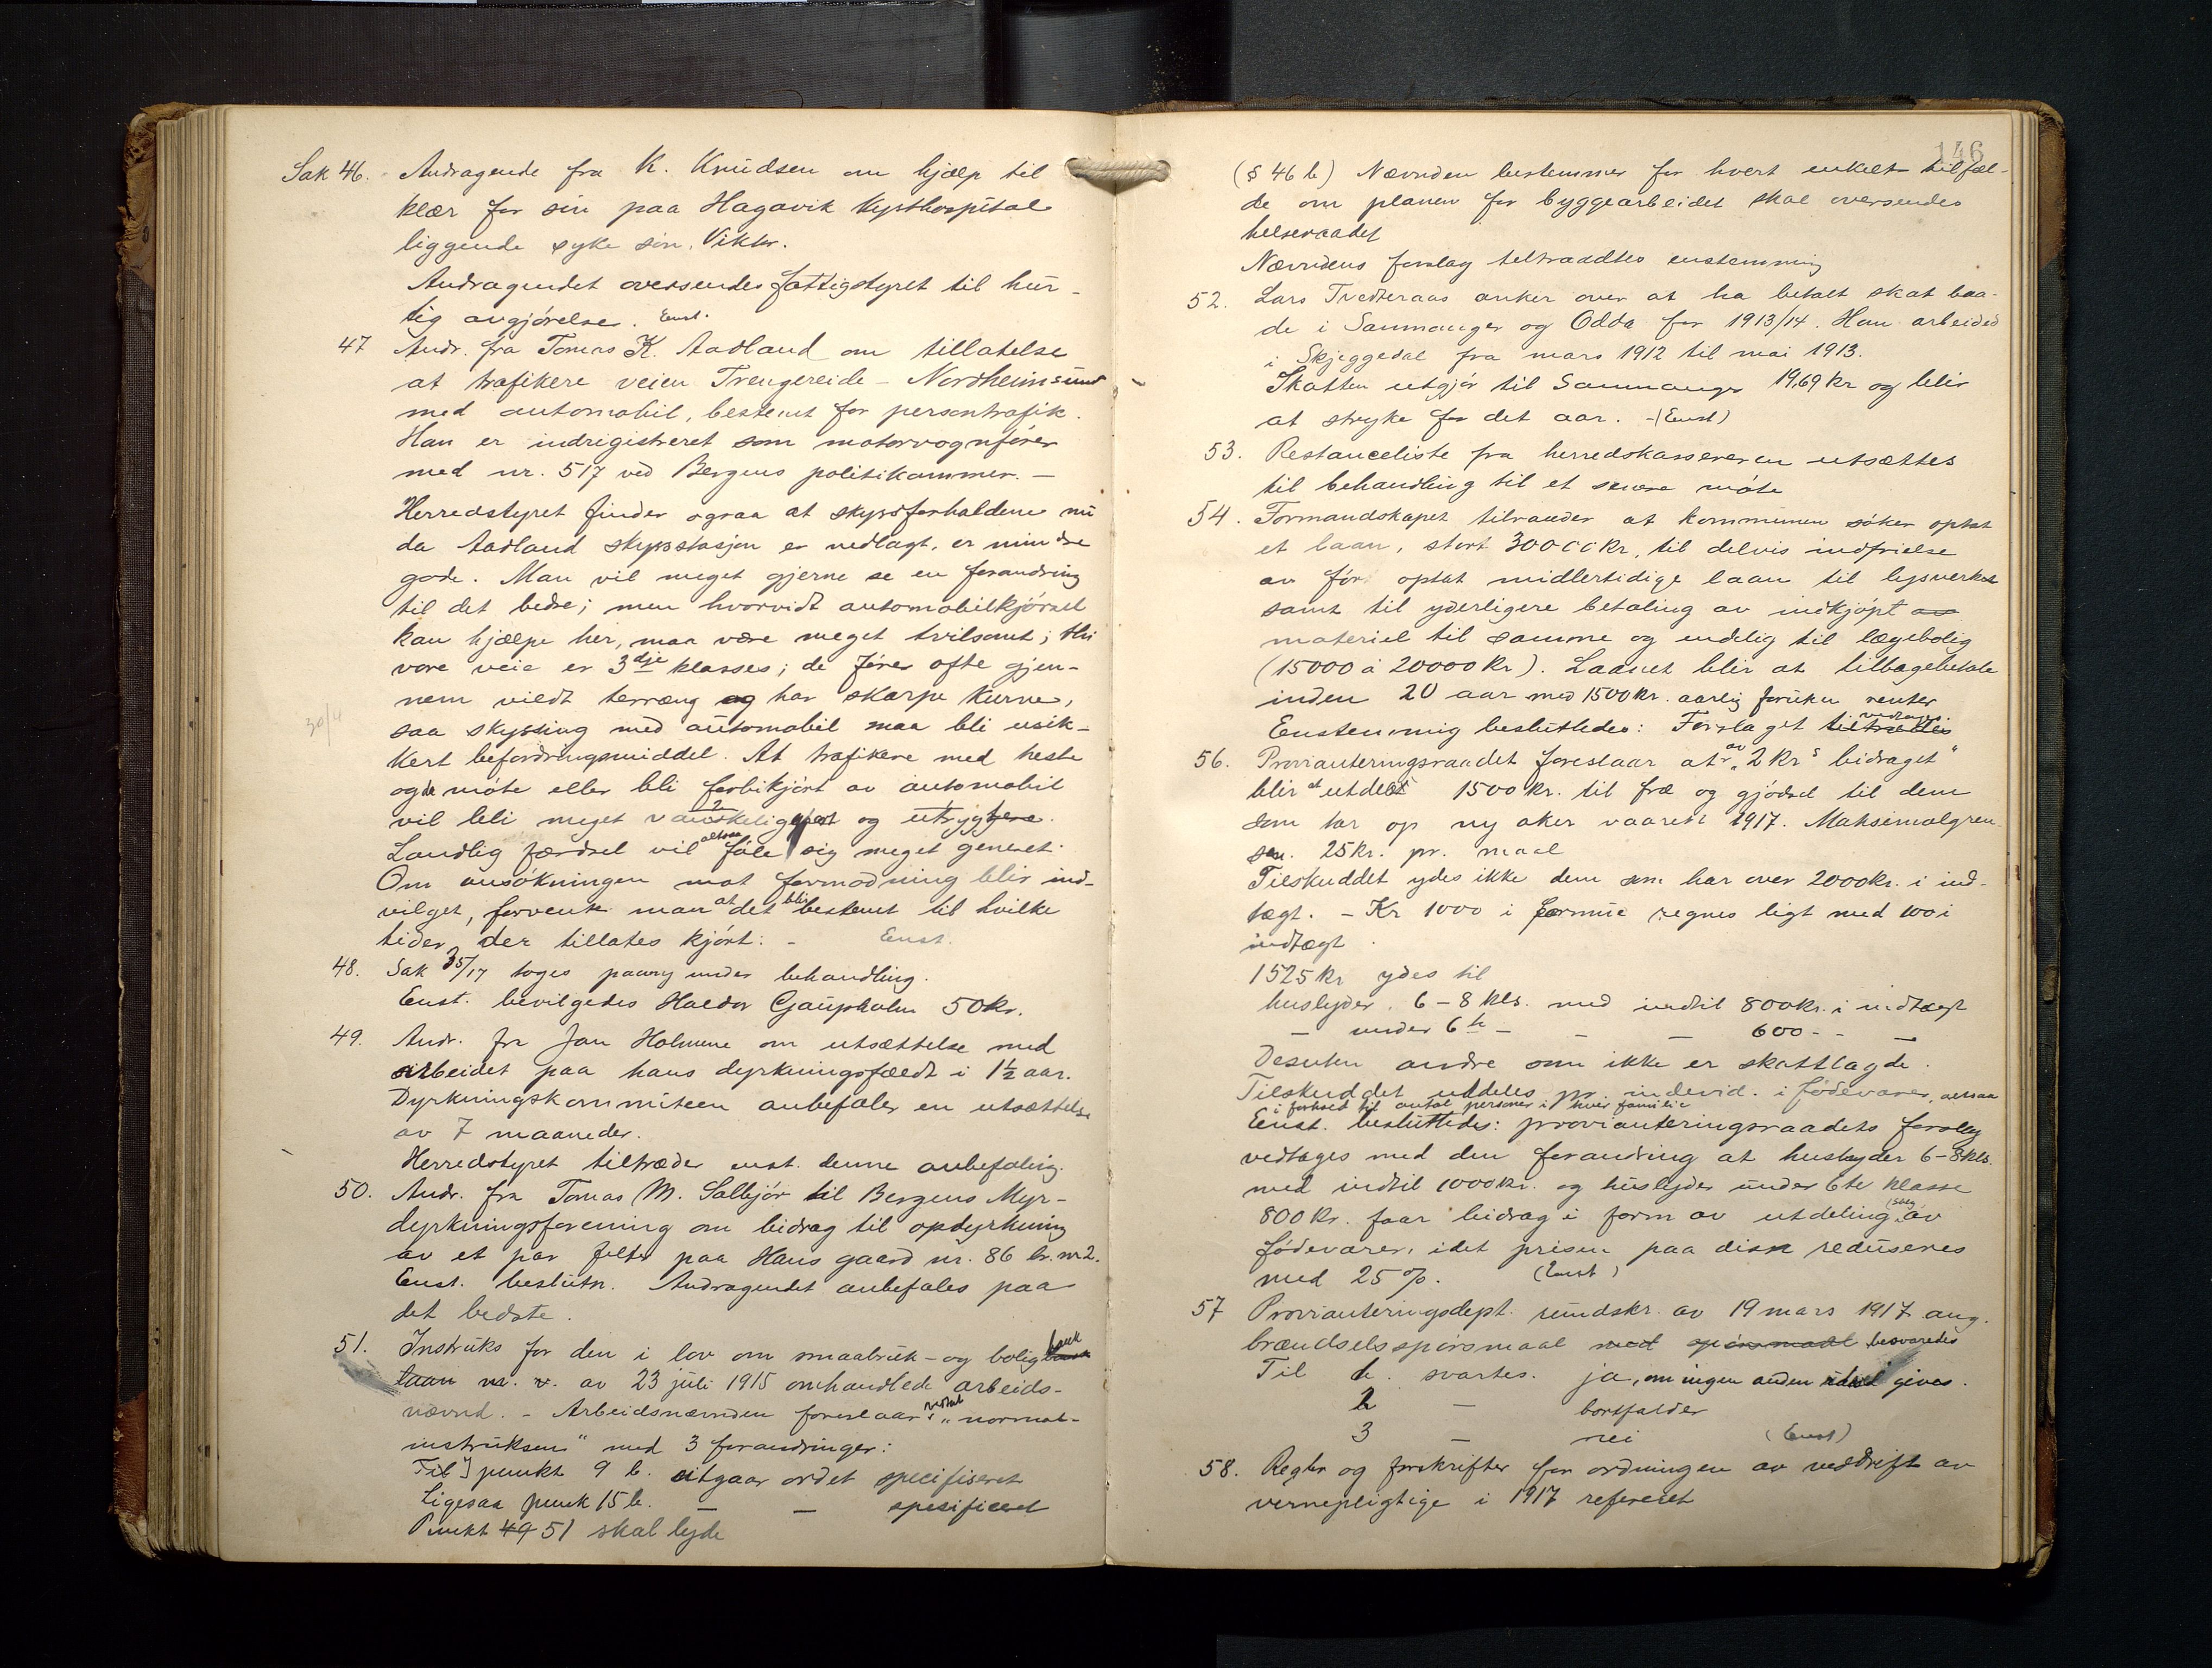 Sak 46. Andragende fra K. Knudsen om hjælp til
klær for sin paa Hagavik kysthospital
liggende syke søn, Viktor.
Andragendet oversendes fattigstyret til hur-
tig avgjørelse. Enst.
47 Andr. fra Tomas K. Aadland om tillatelse
at trafikere veien Trengereide - Nordheimsund
med automobil, bestemt for persontrafik.
Han er indrigistreret som motorvognfører
med nr. 517 ved Bergens politikammer. -
Herredstyret finder ogsaa at skyssforholdene nu
da Aadland skysstasjon er nedlagt, er mindre
gode. Man vil meget gjerne se en forandring
til det bedre; men hvorvidt automobilkjørsel
kan hjælpe her, maa være meget tvilsomt; thi
vore veie er 3dje klasses; de fører ofte gjen-
nem vildt terræng og har skarpe kurve,
30/4
saa skyssing med automobil maa bli usik-
kert befordringsmiddel. At trafikere med heste
og da møte eller bli forbikjørt av automobil
vil bli meget vanskelig og utryg
Landlig færdsel vil altsaa føle sig meget generet.
Om ansøkningen mot formodning blir ind-
vilget, forvent man at det blir bestemt til hvilke
tider der tillates kjørt. - Enst.
48. Sak 35/17 toges paany under behandling.
Enst. bevilgedes Haldor Gjaupholm 50kr.
49. Andr. fra Jan Holmene om utsættelse med
arbeidet paa hans dyrkningsfeldt i 1½ aar.
Dyrkningskommiteen anbefaler en utsættelse
av 7 maaneder.
Herredstyret tiltræder enst. denne anbefaling.
50. Andr. fra Tomas M. Salbjør til Bergens Myr-
dyrkningsforening om bidrag til opdyrkning
av et par felter paa Hans gaard nr. 86 br. nr 2.
Enst. beslutn. Andragendet anbefales paa
det bedste.
51. Instruks for den i lov om smaabruk- og boligbank
laan m. v. av 23 juli 1915 omhandlede arbeids-
nævnd. - Arbeidsnævnden foreslaar "normal-
instruksen" med 3 forandringer:
Til punkt 9 b. utgaar ordet specifiseret
Ligesaa punk 15 b. - - spesificeret
Punkt 49 51 skal lyde
146
(§ 46 b) Nævnden bestemmer for hvert enkelt tilfæl-
de om planen for byggearbeidet skal oversendes
helseraadet
Nævndens forslag tiltraadtes enstemmig
52. Lars Tvedteraas anker over at ha betalt skat baa-
de i Samnanger og Odda for 1913/14. Han arbeided
i Skjeggedal fra mars 1912 til mai 1913.
Skatten utgjør til Samnanger 19,69 kr og blir
at stryke for det aar. - (Enst)
53. Restanceliste fra herredskassereren utsættes
til behandling til et senere møte
54. Formandskapet tilraader at kommunen søker optat
et laan, stort 30000 kr, til delvis indfrielse
av før optat midlertidige laan til lysverket
samt til yderligere betaling av indkjøpt av
materiel til samme og endelig til lægebolig
(15000 à 20000 kr). Laanet blir at tilbagebetale
inden 20 aar med 1500 kr. aarlig foruten renter
Enstemmig besluttedes: Forslaget tiltrædtes vedtages.
56. Provianteringsraadet foreslaar at av "2 kr's bidraget"
blir at utdele 1500 kr. til frø og gjødsel til dem
som tar op ny aker vaaren 1917. Maksimalgren-
sen. 25 kr. pr. maal
Tilskuddet ydes ikke dem som har over 2000 kr. i ind-
tægt. - Kr 1000 i formue regnes ligt med 100 i
indtægt.
1525 kr ydes til
huslyder. 6 - 8 kls. med indtil 800 kr. i indtægt
- under 6te - - - 600 - -
Desuten andre som ikke er skattlagde.
Tilskuddet utdeles pr. individ. i fødevarer, altsaa
i forhold til antal personer i hver familie
Enst. besluttedes: provianteringsraadets forslag
vedtages med den forandring at huslyder 6 - 8 kls.
med indtil 1000 kr. og huslyder under 6te klasse
800 kr. faar bidrag i form av utdeling (salg) av
fødevarer, idet prisen paa disse reduseres
med 25 %. (Enst)
57 Provianteringsdept. rundskr. av 19 mars 1917 ang.
brændselsspørsmaal med spørsmaal besvaredes
Til 1. svartes. ja, om ingen anden gives.
2 - bortfalder
3 - nei (Enst)
58. Regler og forskrifter for ordningen av veddrift av
vernepligtige i 1917 refereret